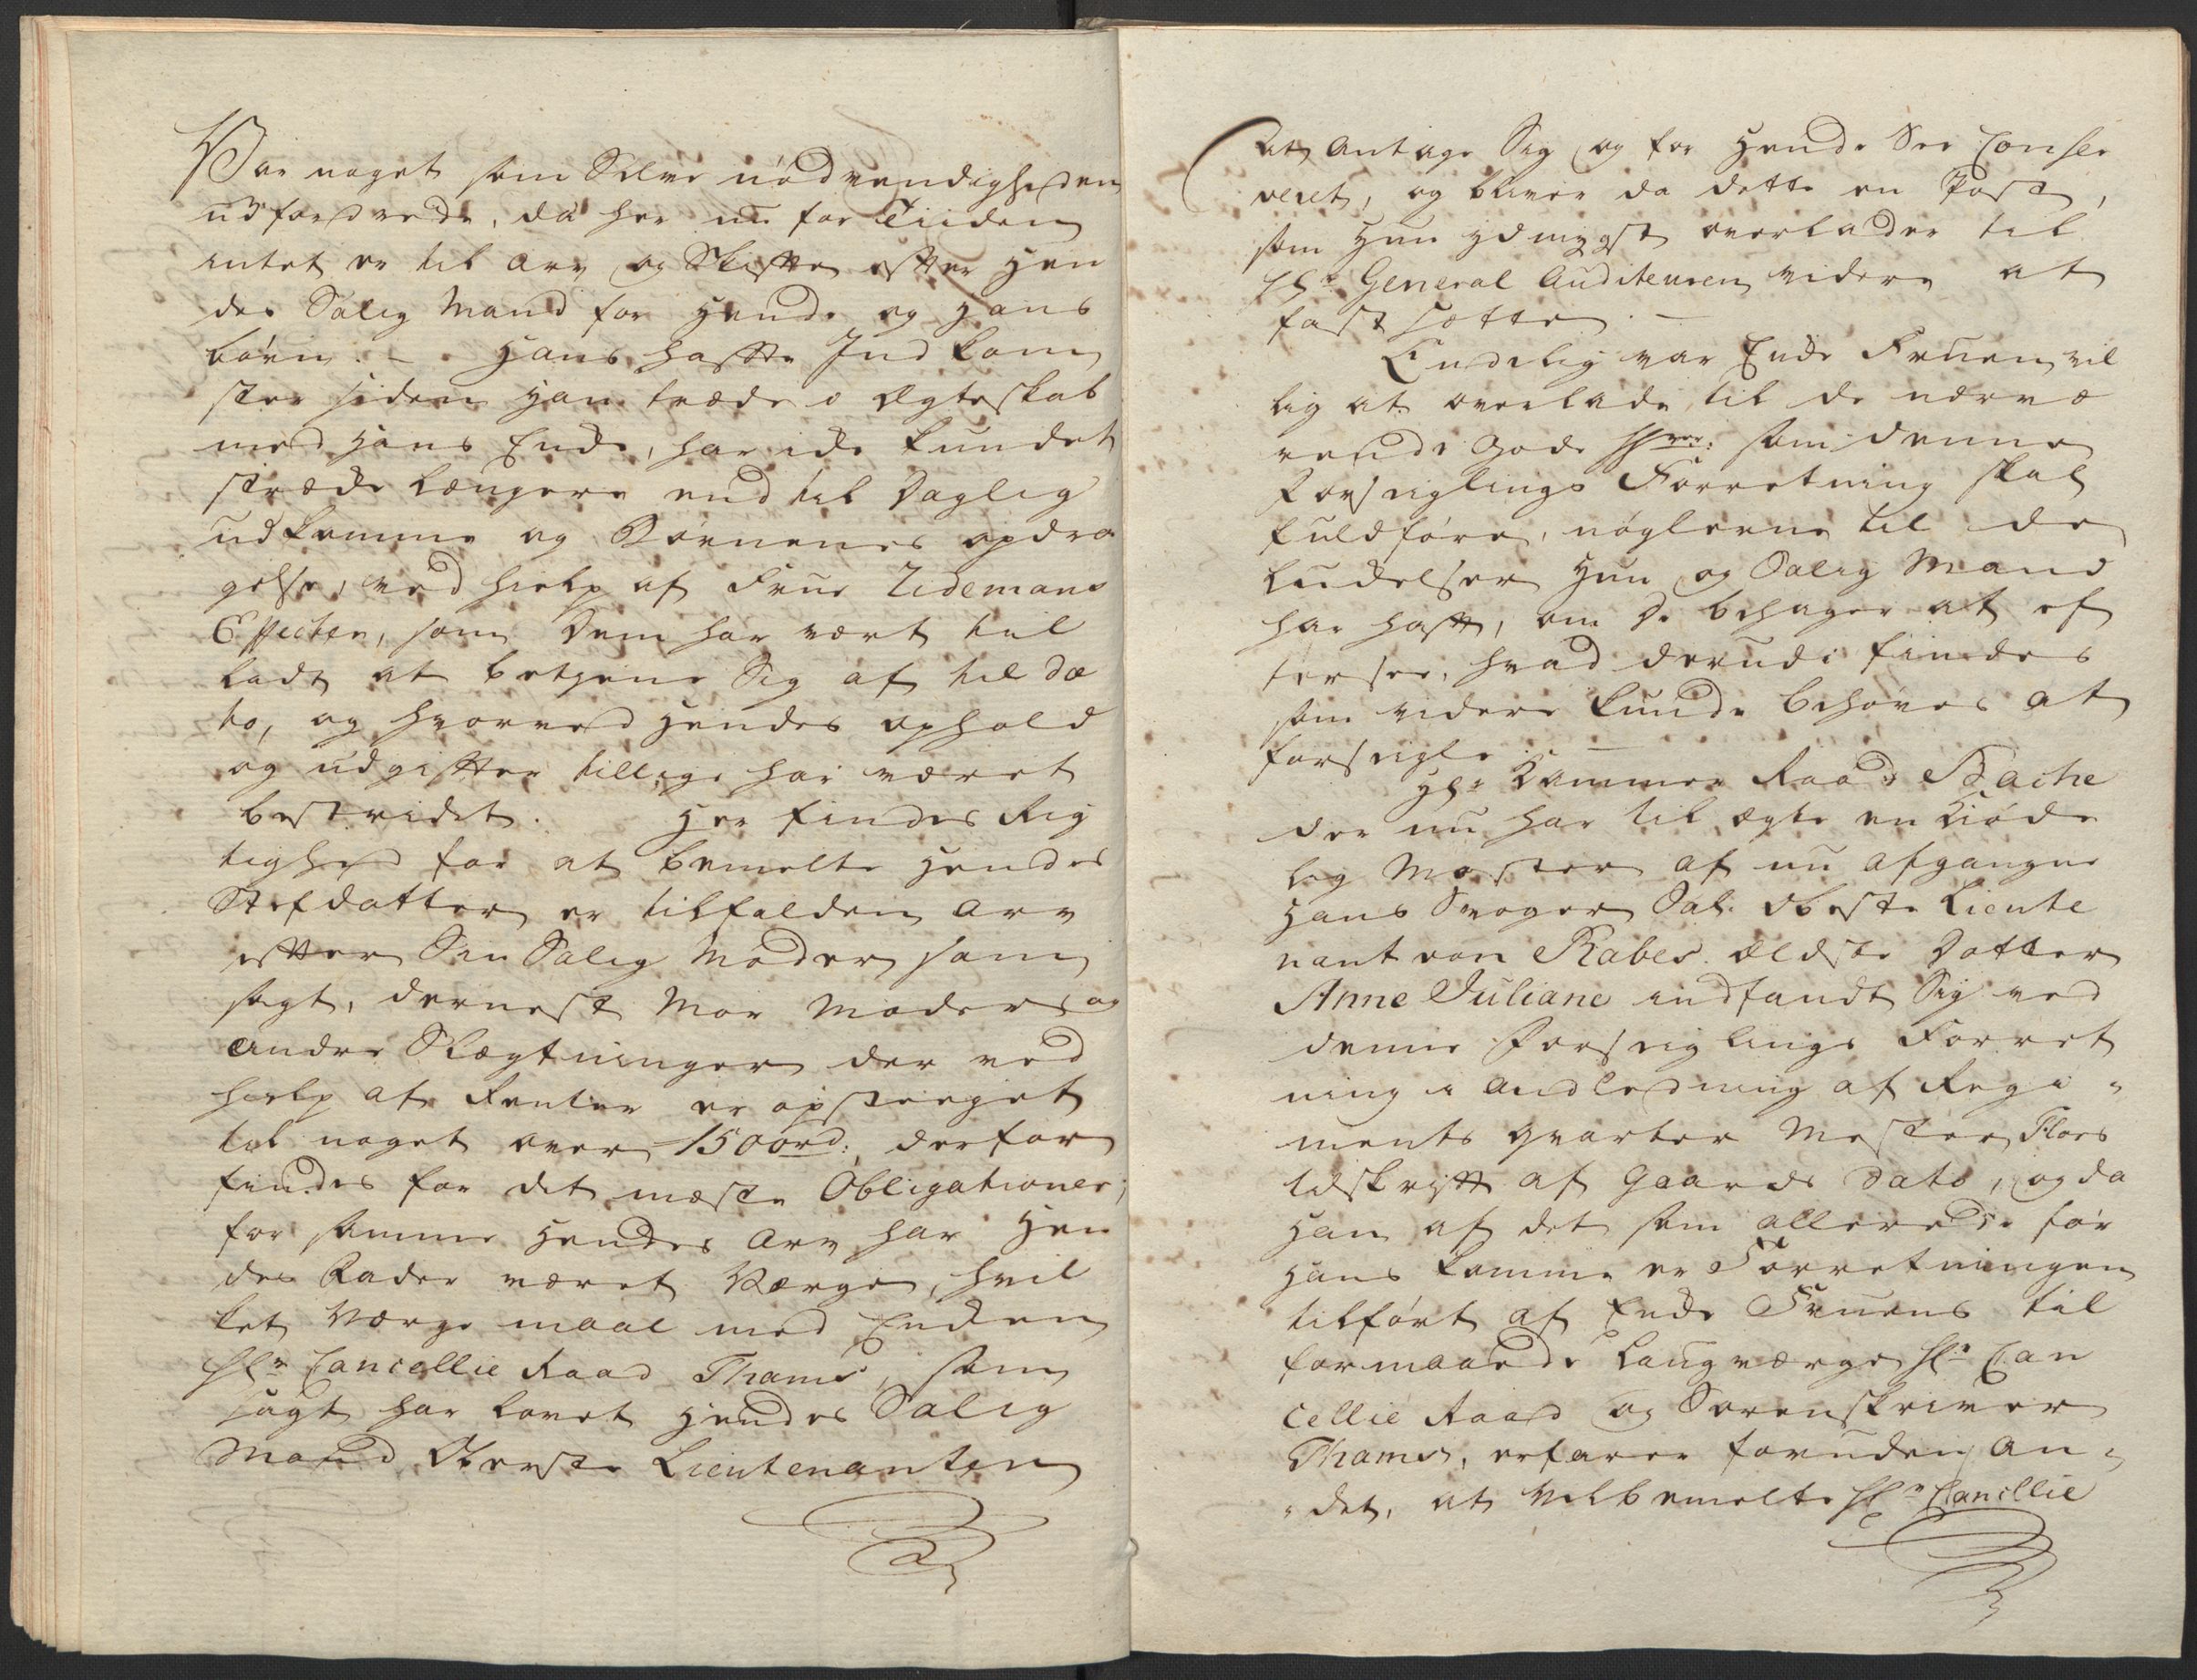 Var noget som Selve nödvendigheden
udfordrede, da her nu for Tiiden
intet er til arv og Skifte efter Hen
des Salig Mand for Hende og Hans
börn. - Hans hafte Ind kom
ster siden Han træde i Ægteskab
med Hans Enke, har icke kundet
strække længere end til Daglig
udkomme og Börnenes opdra
gelse, ved hielp af Frue Tidemans
Effecter, som Dem har vært til
ladt at betiene Sig af til da
to, og hvorved Hendes ophold
og udgifter tillige har været
bestridet. Her findes Rig
tighed for at bemelte Hendes
Stefdatter er tilfalden Arv
efter Sin Salig Moder som
sagt, dernest Mor Moder og
andre Slægtninger der ved
hielp af Renter er opsteeget
til noget over 1500 rd: derfor
findes for det mæste Obligationer;
for samme Hendes Arv har Hen
des Fader været Værge, hvil
ket Værge maal med Enken
Hr Cancellie Raad Thams, som
sagt har lovet Hendes Salig
Mand Oberste Lieutenanten
at antage Sig og for Hende See Conser
veret, og bliver da dette en Post,
som Hun ydmygst overlader til
Hr General Auditeuren videre at
fastsætte. -
Endelig var Enke Fruen vil
lig at overlade til de nærvæ
rende gode Hrer: som denne
Forseiglings Forretning skal
fuldföre, nöglerne til de
Lukkelser Hun og Salig Mand
har haft, om De behager at ef
tersee, hvad derudi findes
som videre kunde behöves at
forseigle. -
Hr Kammer Raad Bache
der nu har til ægte en Kiöde
lig Moster af nu afgangne
Hans Svoger Sal: Oberste Lieute
nant von Rabes ældste Datter
Anne Juliane indfandt Sig ved
denne Forseiglings Forret
ning i andledning af Regi-
ments Qvarteer Mester Floers
tilskrift af Gaards Dato, og da
Han af det som allerede för
Hans komme er Forretningen
tilfört af Enke Fruens til
formaaede Laugværge Hr Can
cellie Raad og Sorenskriver
Thams, erfarer foruden an-
det, at Velbemelte Hr Cancellie